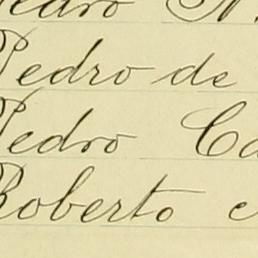 Pedro
Pedro de
Pedro Ca
Roberto